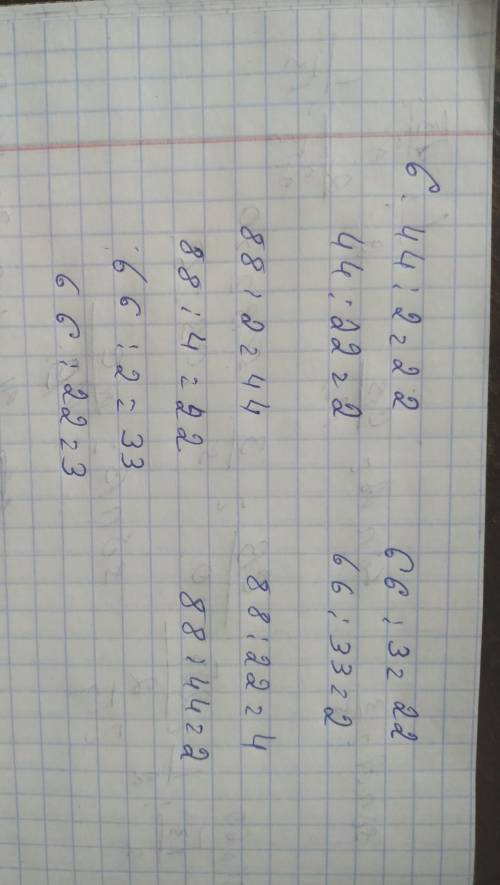 6. 44:2=22 66:3=22
44:22=2 66:33=2
88:2=44 88:22=4
88:4=22 88:44=2
66:2=33
66:22=3